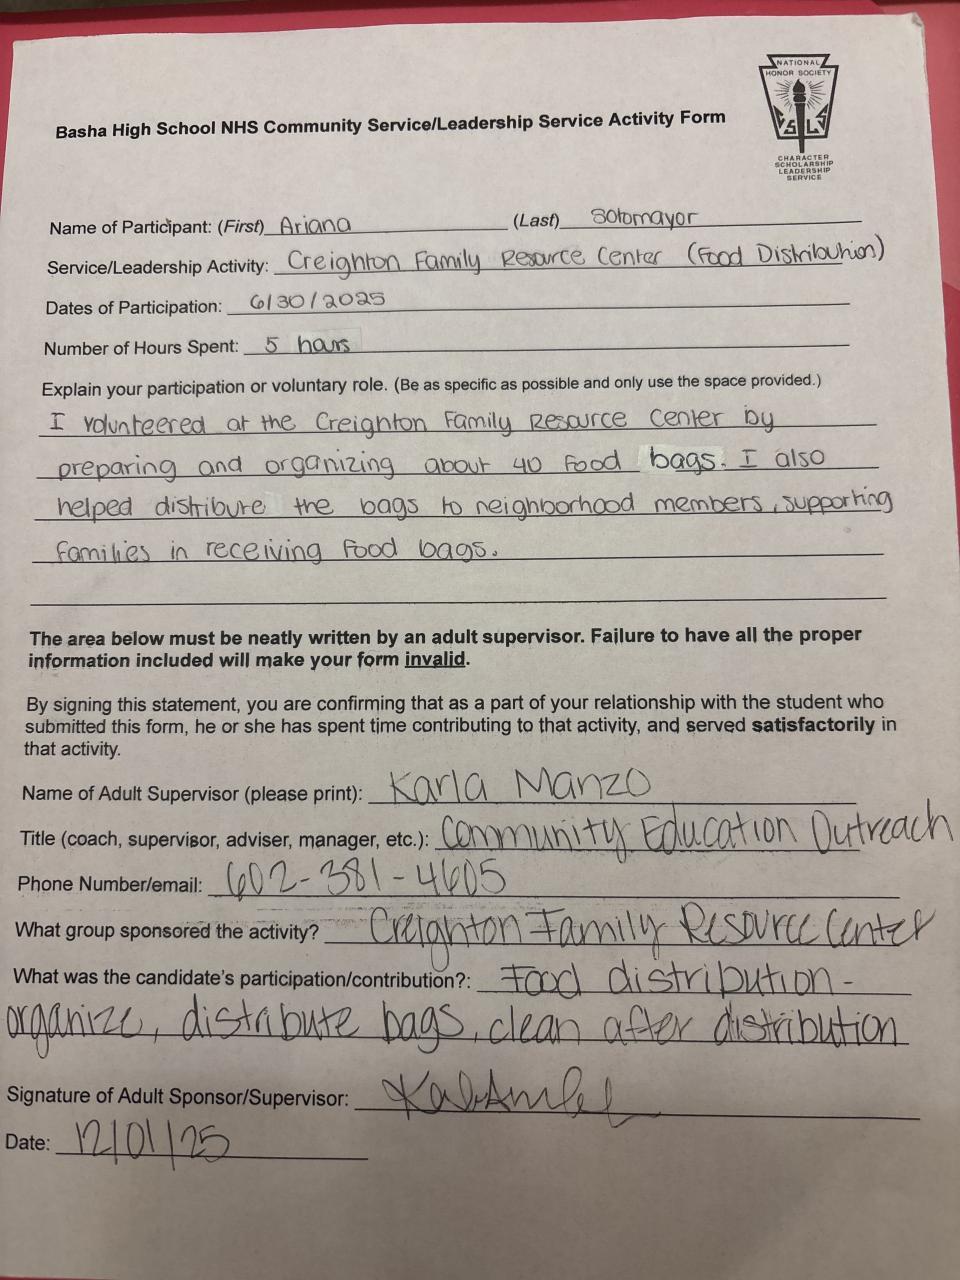 NATIONAL
HONOR SOCIETY
S L S
CHARACTER
SCHOLARSHIP
LEADERSHIP
SERVICE
Basha High School NHS Community Service/Leadership Service Activity Form
Name of Participant: (First) Ariana (Last) Sotomayor
Service/Leadership Activity: Creighton Family Resource Center (Food Distribution)
Dates of Participation: 6/30/2025
Number of Hours Spent: 5 hours
Explain your participation or voluntary role. (Be as specific as possible and only use the space provided.)
I volunteered at the Creighton Family Resource Center by
preparing and organizing about 40 food bags. I also
helped distribute the bags to neighborhood members, supporting
families in receiving food bags.
The area below must be neatly written by an adult supervisor. Failure to have all the proper
information included will make your form invalid.
By signing this statement, you are confirming that as a part of your relationship with the student who
submitted this form, he or she has spent time contributing to that activity, and served satisfactorily in
that activity.
Name of Adult Supervisor (please print): Karla Manzo
Title (coach, supervisor, adviser, manager, etc.): Community Education Outreach
Phone Number/email: 602-381-4605
What group sponsored the activity? Creighton Family Resource Center
What was the candidate's participation/contribution?: Food distribution -
organize, distribute bags, clean after distribution
Signature of Adult Sponsor/Supervisor:
Date: 12/01/25